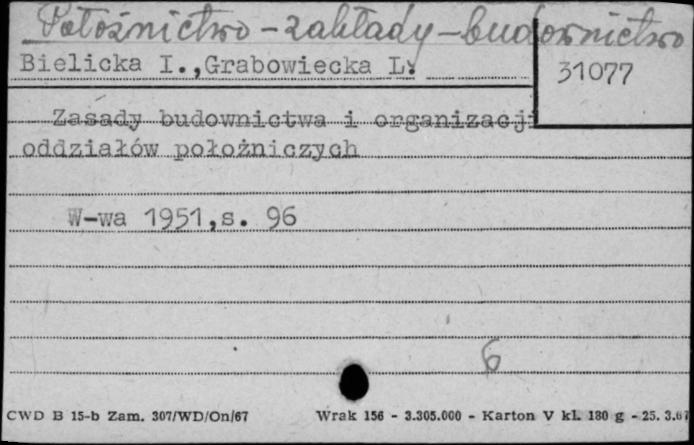 Położnictwo - zakłady - budownictwo
Bielicka I.,Grabowiecka L.
31077
Zasady budownictwa i organizacji
oddziałów położniczych
W-wa 1951,s. 96
6
CWD B 15-b Zam. 307/WD/On/67 Wrak 156 - 3.305.000 - Karton V kl. 180 g - 25. 3.67